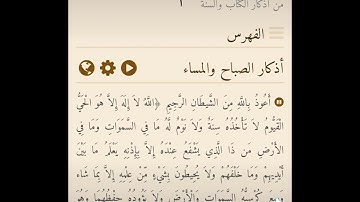 من أذكار الكتاب والسنة ١
الفهرس
أذكار الصباح والمساء
أَعُوذُ بِاللَّهِ مِنَ الشَّيْطَانِ الرَّجِيمِ ﴿اللَّهُ لَا إِلَهَ إِلاَّ هُوَ الْحَيُّ
الْقَيُّومُ لَا تَأْخُذُهُ سِنَةٌ وَلَا نَوْمٌ لَّهُ مَا فِي السَّمَوَاتِ وَمَا فِي
الأَرْضِ مَن ذَا الَّذِي يَشْفَعُ عِنْدَهُ إِلاَّ بِإِذْنِهِ يَعْلَمُ مَا بَيْنَ
أَيْدِيهِمْ وَمَا خَلْفَهُمْ وَلَا يُحِيطُونَ بِشَيْءٍ مِّنْ عِلْمِهِ إِلاَّ بِمَا شَاء
وَسِعَ كُرْسِيُّهُ السَّمَوَاتِ وَالأَرْضَ وَلَا يَؤُودُهُ حِفْظُهُمَا وَهُوَ